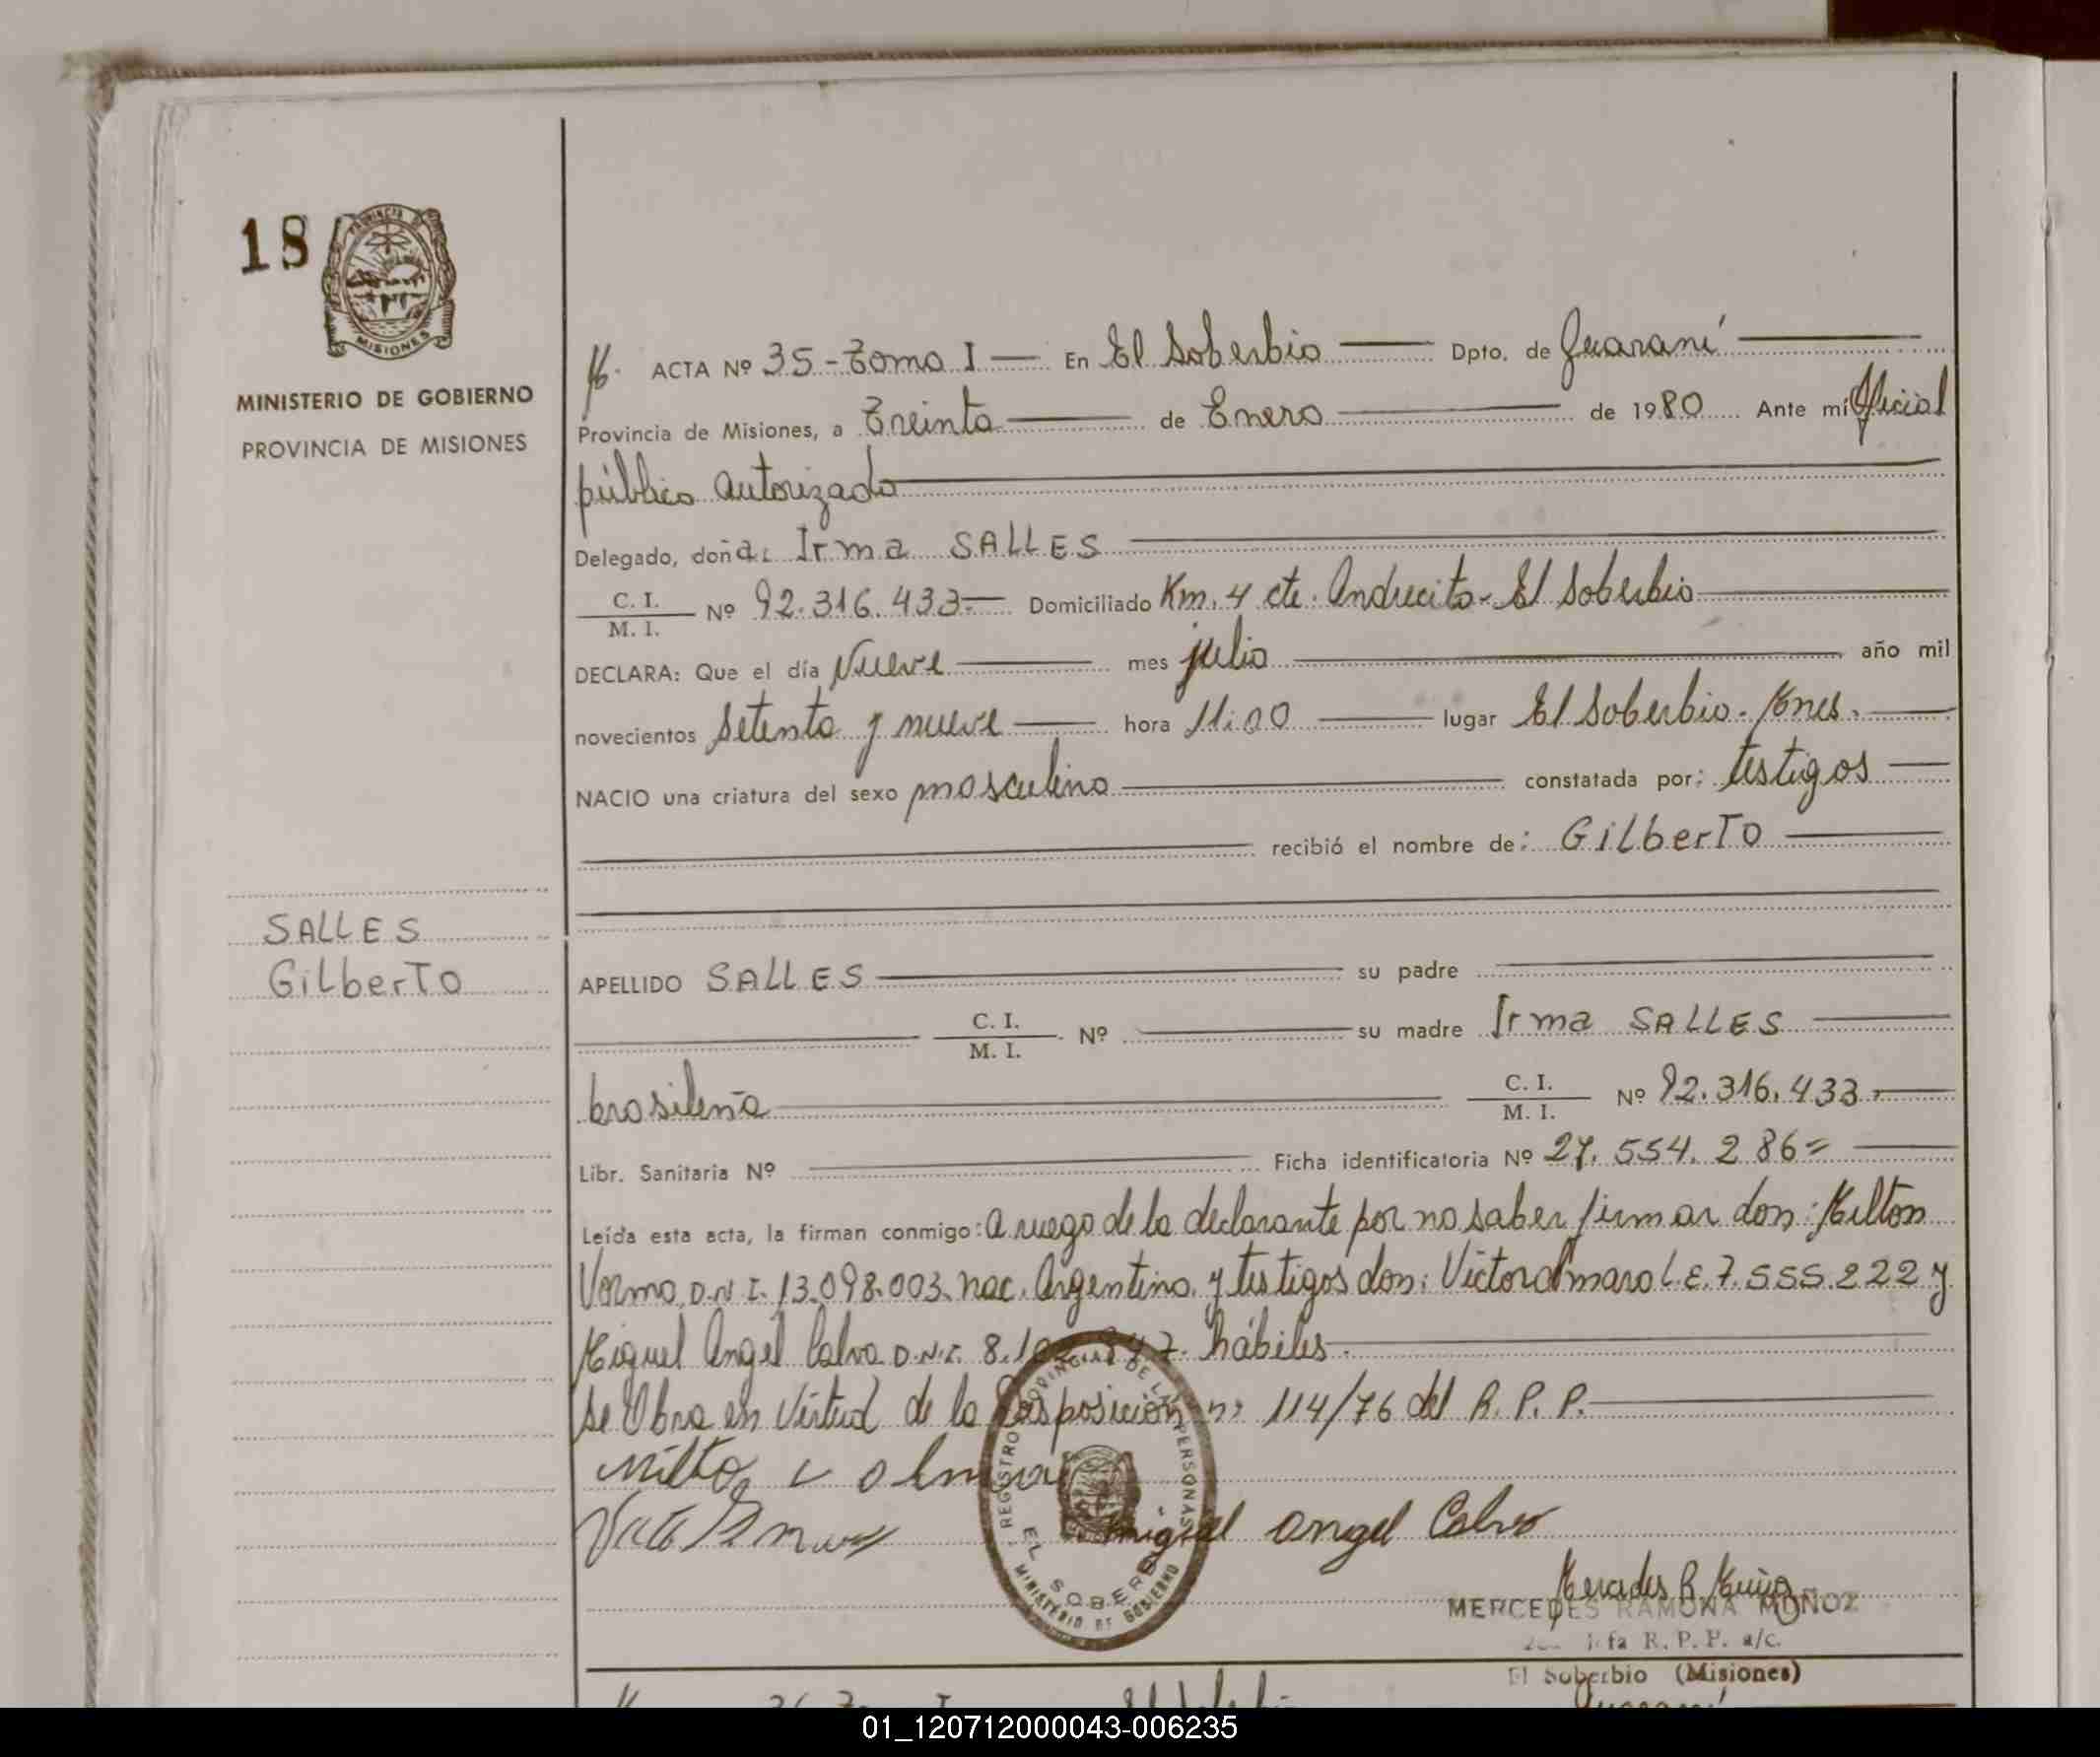 18
PROVINCIA DE
MISIONES
MINISTERIO DE GOBIERNO
PROVINCIA DE MISIONES
ACTA Nº 35 - Tomo I — En El Soberbio — Dpto. de Guaraní —
Provincia de Misiones, a Treinta — de Enero — de 1980 Ante mí Oficial
público autorizado —
Delegado, doña: Irma SALLES —
C. I.
M. I. Nº 92.316.433.— Domiciliado Km. 4 cte. Andrecito - El Soberbio —
DECLARA: Que el día Nueve — mes julio — año mil
novecientos Setenta y nueve — hora 11:00 — lugar El Soberbio. Mnes. —
NACIO una criatura del sexo masculino — constatada por: testigos —
— recibió el nombre de: GilberTo —
SALLES
GilberTo
APELLIDO SALLES — su padre —
— C. I.
M. I. Nº — su madre Irma SALLES —
brasileña — C. I.
M. I. Nº 92.316.433.—
Libr. Sanitaria Nº — Ficha identificatoria Nº 27.554.286= —
Leída esta acta, la firman conmigo: a ruego de la declarante por no saber firmar don: Milton
D.N.I. 13.098.003. nac. Argentina. y testigos don: Victor Amaro L.E. 7.555.222 y
Miguel Angel Calvo D.N.I. 8. hábiles. —
Se Obra en Virtud de la Disposición nº 114/76 del R. P. P. —
Miguel angel Calvo
REGISTRO PROVINCIAL DE LAS PERSONAS
EL SOBERBIO
MINISTERIO DE GOBIERNO
Mercedes R Muñoz
MERCEDES RAMONA MUÑOZ
R. P. P. a/c.
El Soberbio (Misiones)
01_120712000043-006235